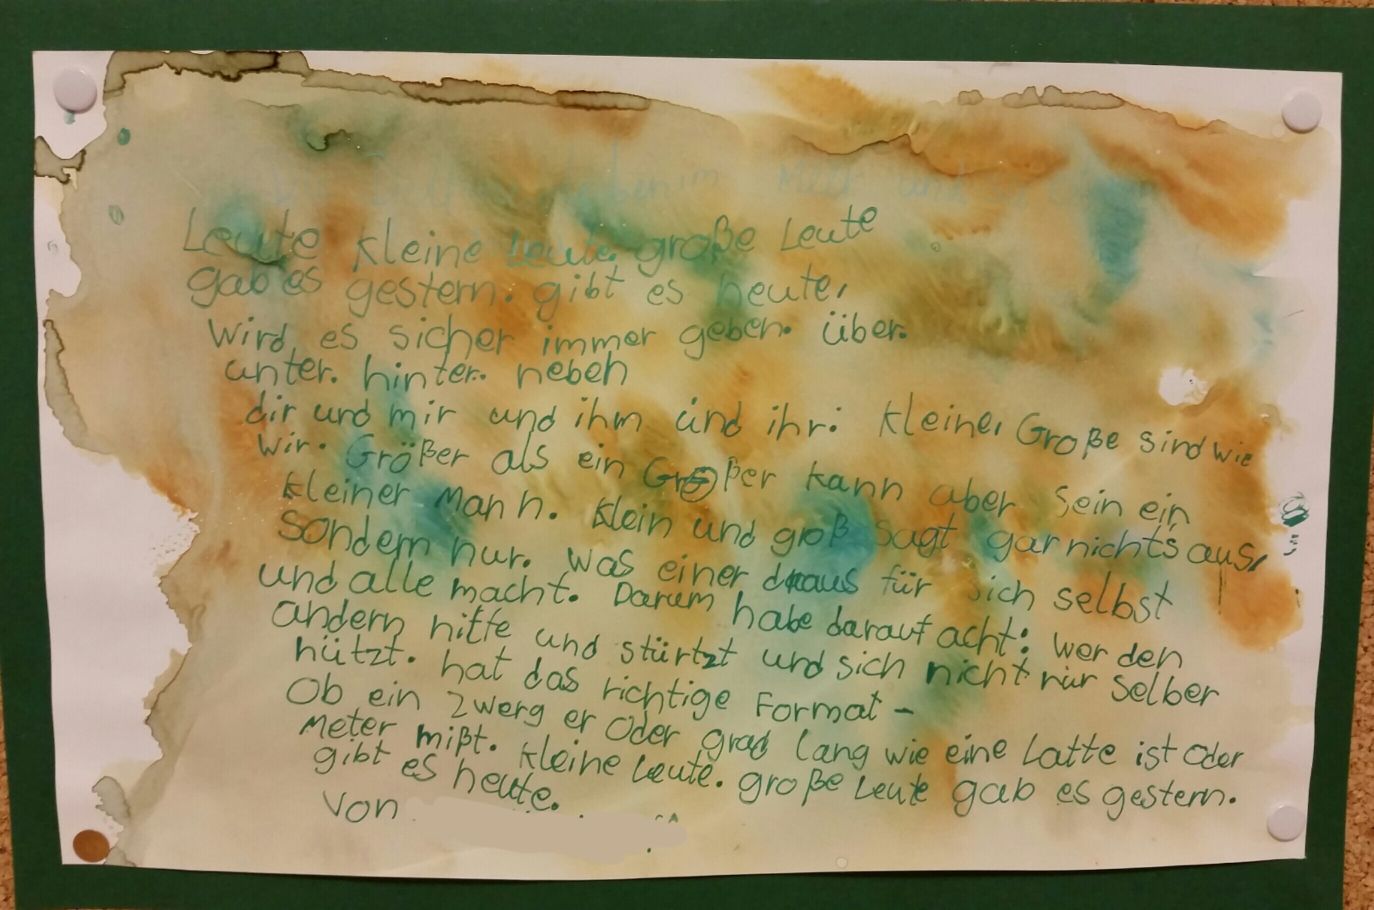 Leute kleine Leute. große Leute
gab es gestern. gibt es heute,
Wird es sicher immer geben. über.
unter. hinter. neben
dir und mir und ihm und ihr: Kleine, Große sind wie
wir. Größer als ein Großer kann aber sein ein
kleiner Mann. Klein und groß sagt gar nichts aus,
sondern nur. was einer draus für sich selbst
und alle macht. Darum habe darauf acht: wer den
andern hilfe und stürtzt und sich nicht nur selber
nützt. hat das richtige Format -
Ob ein Zwerg er Oder grad lang wie eine Latte ist oder
Meter mißt. Kleine Leute. große Leute gab es gestern.
gibt es heute.
Von